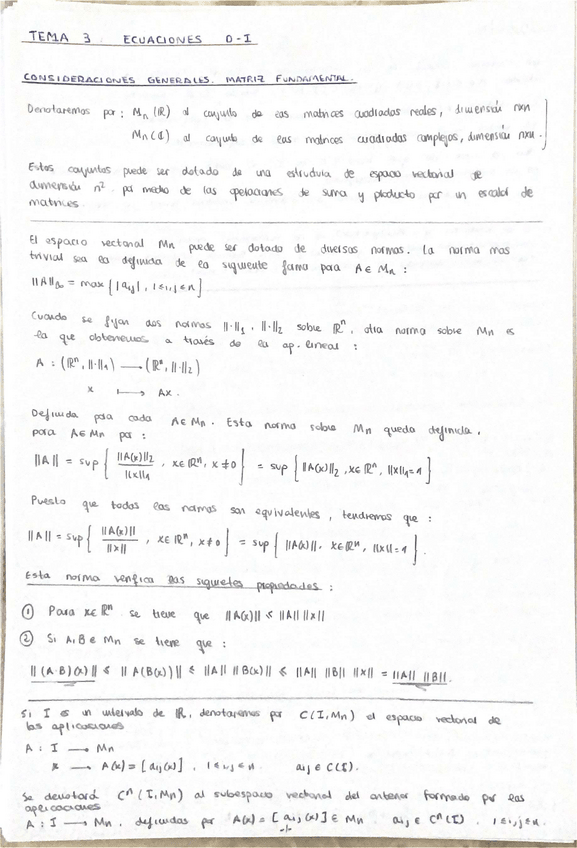 TEMA 3. ECUACIONES D-I
CONSIDERACIONES GENERALES. MATRIZ FUNDAMENTAL.
Denotaremos por: Mn(ℝ) al conjunto de las matrices cuadradas reales, dimensión nxn
Mn(ℂ) al conjunto de las matrices cuadradas complejos, dimensión nxn.
Estos conjuntos puede ser dotado de una estructura de espacio vectorial de
dimensión n². por medio de las operaciones de suma y producto por un escalar de
matrices.
El espacio vectorial Mn puede ser dotado de diversas normas. La norma mas
trivial sea la definida de la siguiente forma para A∈Mn:
||A||∞ = max{|aij|, 1≤i,j≤n}
Cuando se fijan dos normas ||·||₁, ||·||₂ sobre ℝⁿ, otra norma sobre Mn es
la que obtenemos a través de la ap. lineal:
A : (ℝⁿ, ||·||₁) → (ℝⁿ, ||·||₂)
x ↦ Ax.
Definida para cada A∈Mn. Esta norma sobre Mn queda definida,
para A∈Mn por:
||A|| = sup{ ||A(x)||₂ / ||x||₁ , x∈ℝⁿ, x≠0 } = sup{ ||A(x)||₂, x∈ℝⁿ, ||x||₁=1 }
Puesto que todas las normas son equivalentes, tendremos que:
||A|| = sup{ ||A(x)|| / ||x|| , x∈ℝⁿ, x≠0 } = sup{ ||A(x)||, x∈ℝⁿ, ||x||=1 }.
Esta norma verifica las siguietes propiedades:
① Para x∈ℝⁿ se tiene que ||A(x)|| ≤ ||A|| ||x||
② Si A,B∈Mn se tiene que:
||(A·B)(x)|| ≤ ||A(B(x))|| ≤ ||A|| ||B(x)|| ≤ ||A|| ||B|| ||x|| = ||A|| ||B||.
Si I es un intervalo de ℝ, denotaremos por C(I,Mn) el espacio vectorial de
las aplicaciones
A : I → Mn
x → A(x) = [aij(x)], 1≤i,j≤n. aij∈C(I).
Se denotará Cⁿ(I,Mn) al subespacio vectorial del anterior formado por las
aplicaciones
A : I → Mn, definidas por A(x) = [aij(x)]∈Mn aij∈Cⁿ(I), 1≤i,j≤n.